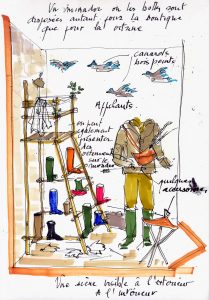 Un mirador où les bottes sont
disposées autant pour la boutique
que pour la vitrine
canards
bois peints
Appelants.
on peut
également
présenter
des
vêtements
sur le
mirador
quelques
accessoires
Une scène visible à l'extérieur
& l'intérieur